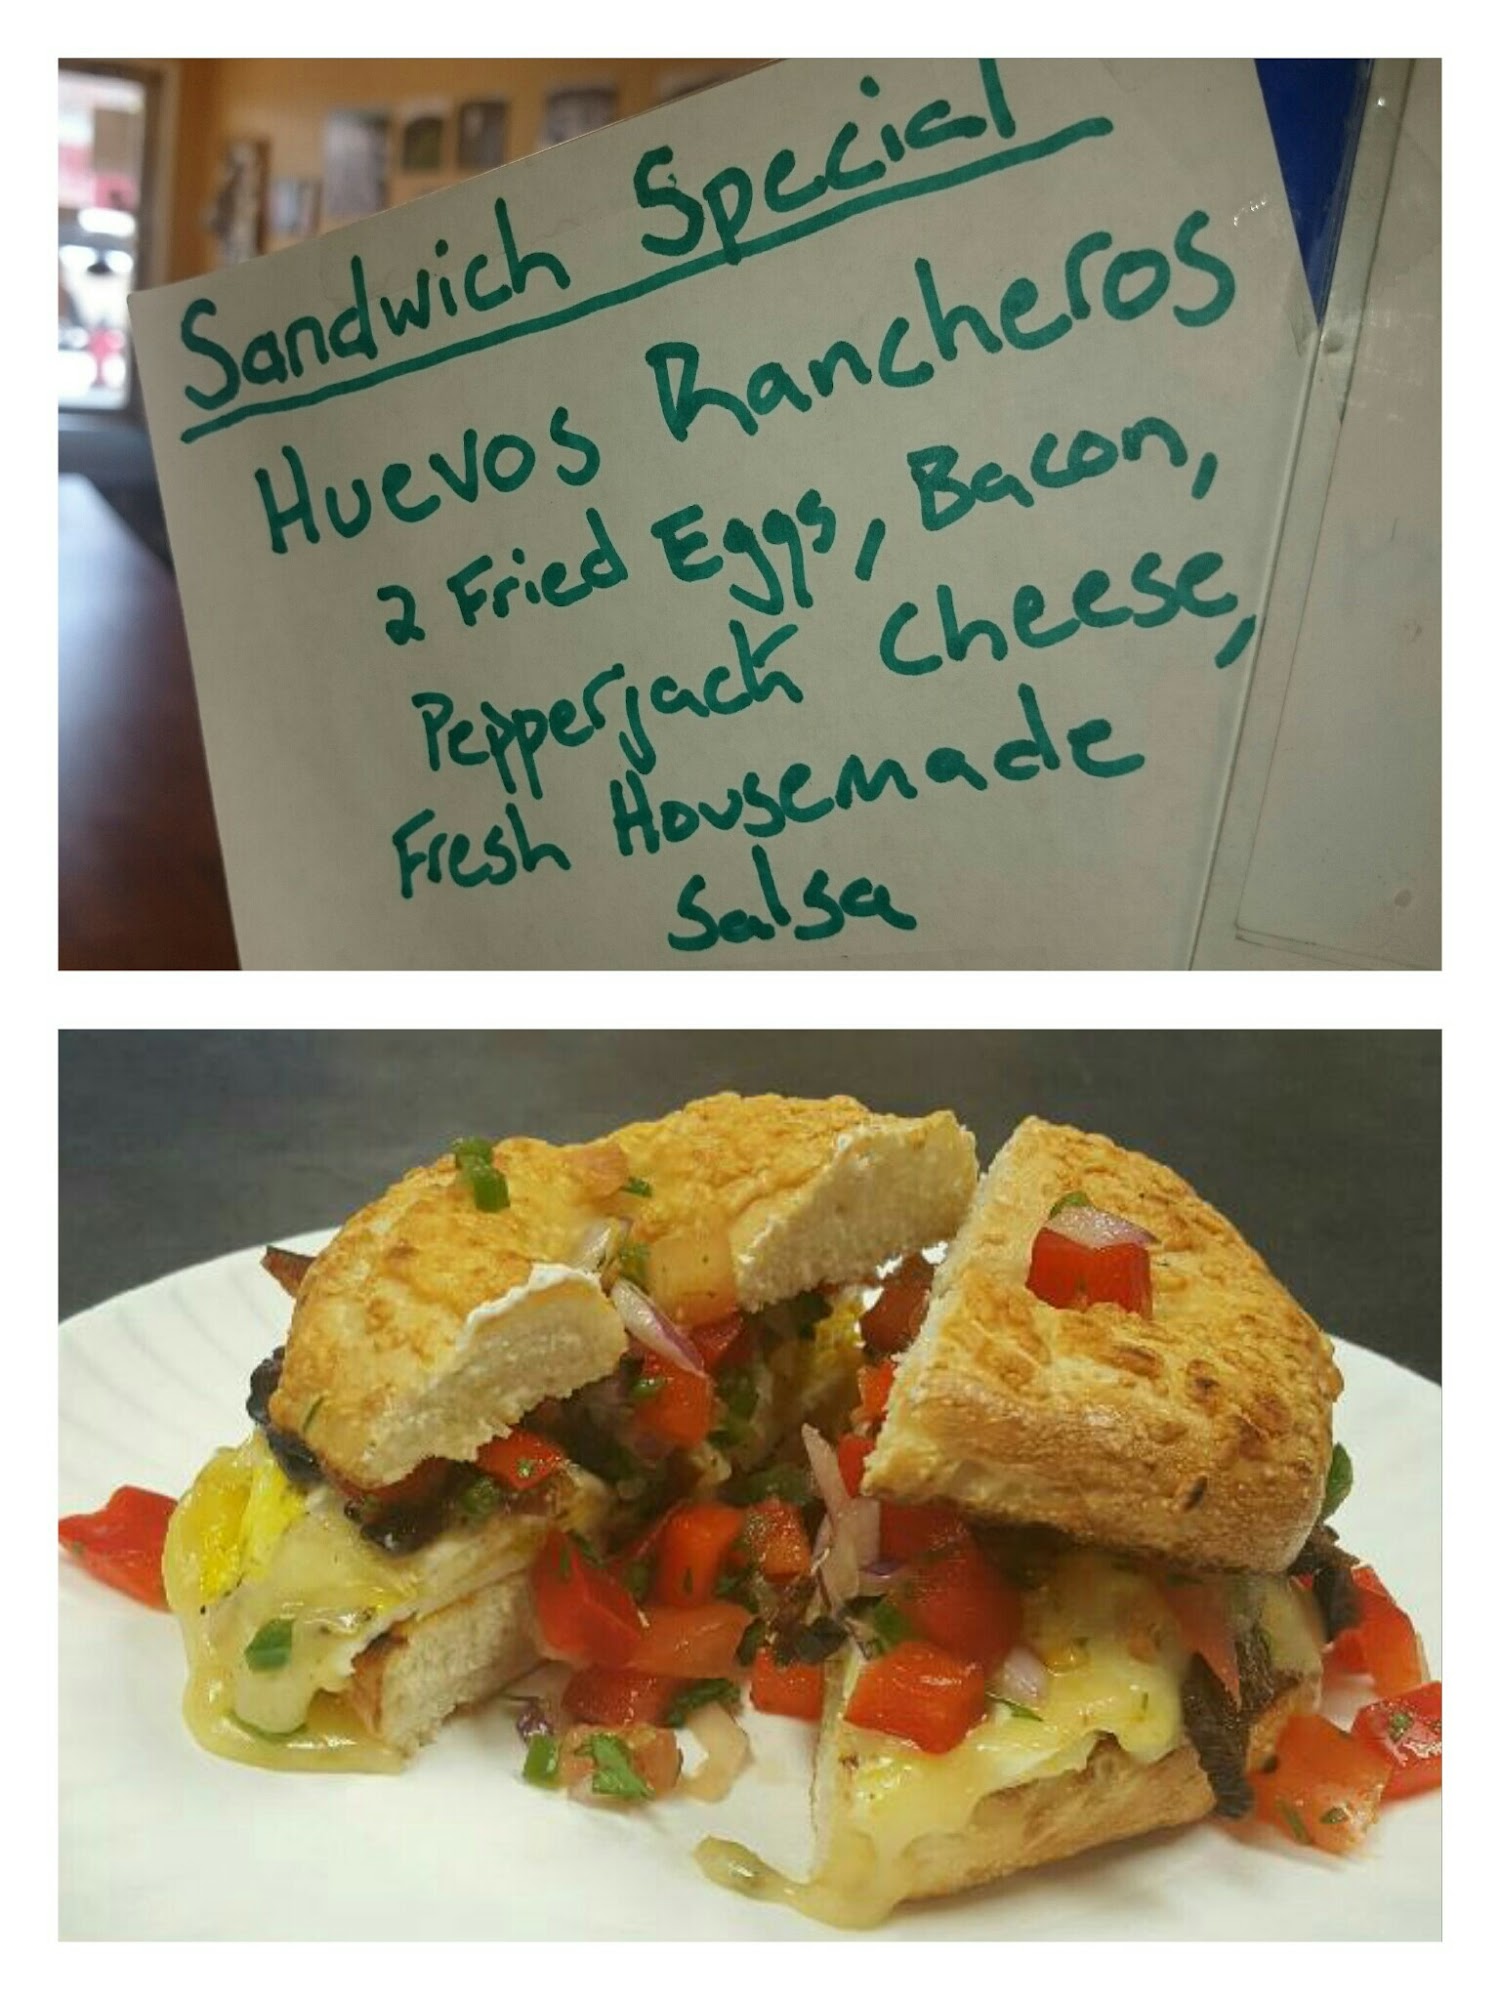 Sandwich Special
Huevos Rancheros
2 Fried Eggs, Bacon,
Pepperjack Cheese,
Fresh Housemade
Salsa